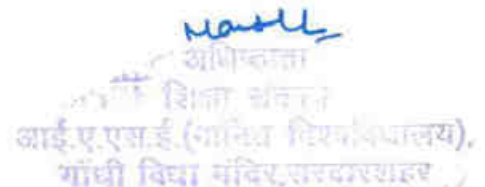 अधिष्ठाता
शिक्षा संकाय
आई.ए.एस.ई.(मानित विश्वविद्यालय),
गांधी विद्या मंदिर,सरदारशहर